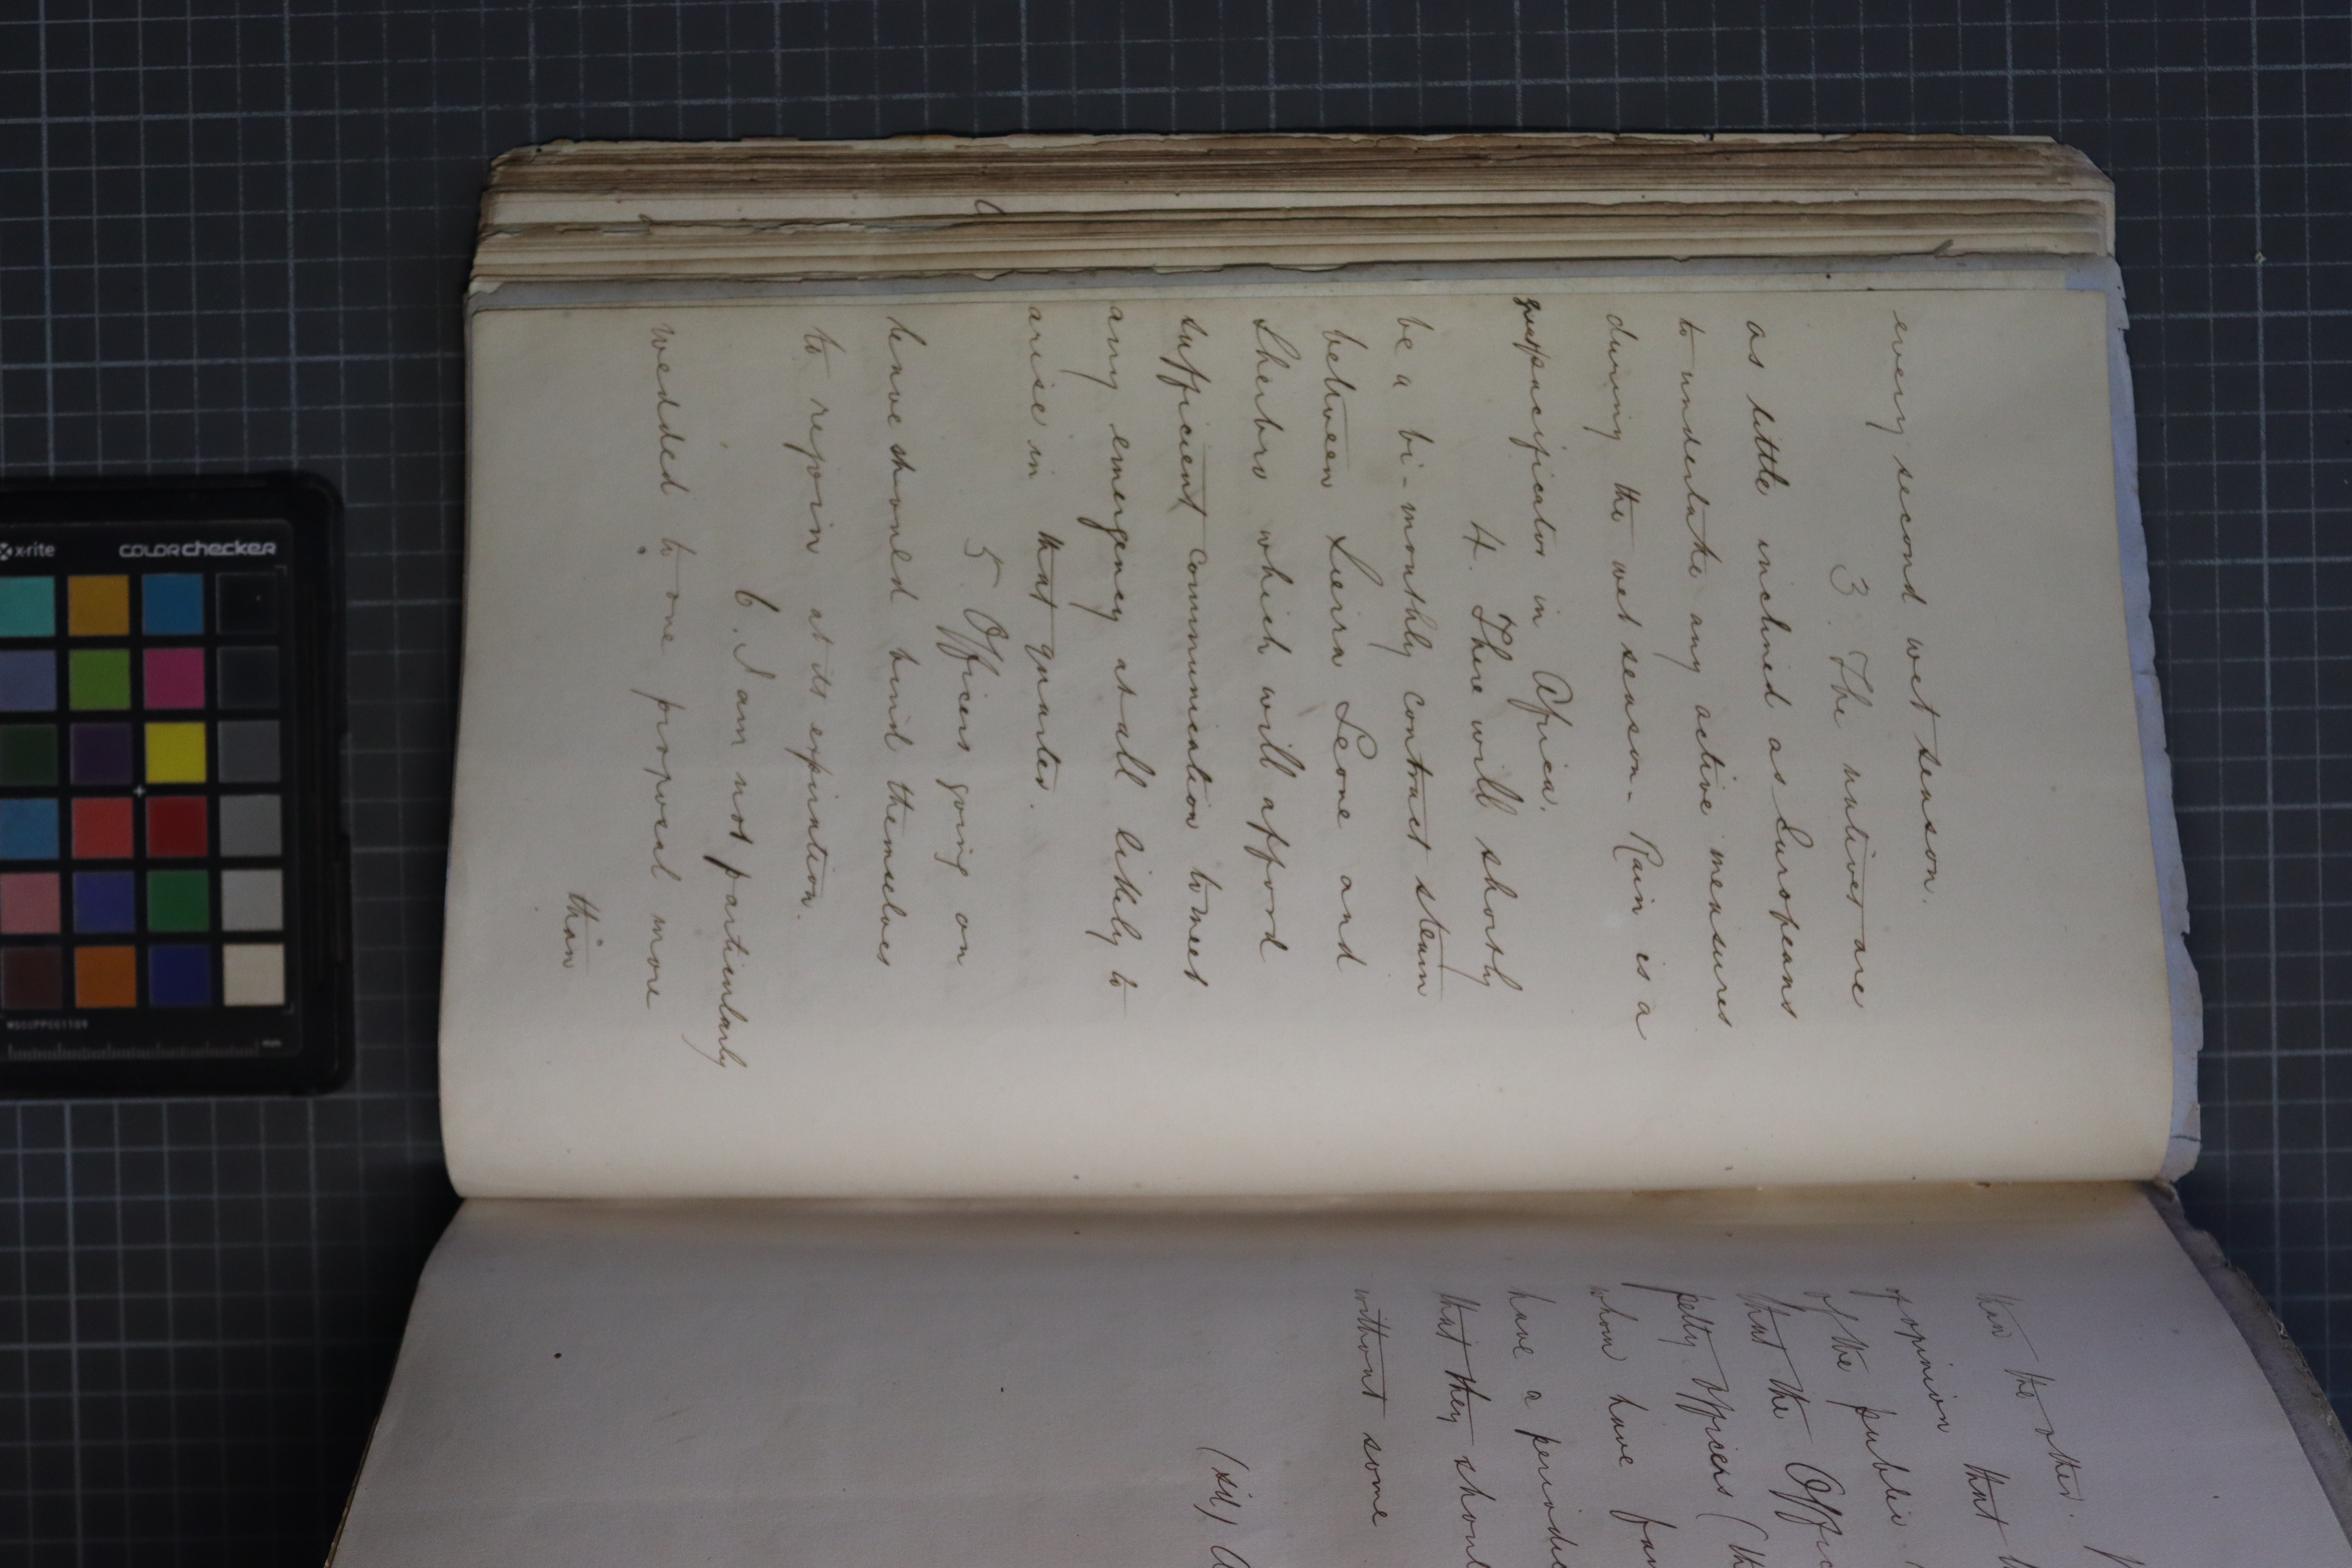 every second wet season.
3. The natives are
as little inclined as Europeans
to undertake any active measures
during the wet season - Rain is a
great pacificator in Africa.
4. There will shortly
be a bi-monthly contract steam
between Sierra Leone and
Sherbro which will afford
sufficient communication to meet
any emergency at all likely to
arise in that quarter.
5. Officers going on
leave should bind themselves
to rejoin at its expiration.
6. I am not particularly
wedded to one proposal more
than
than the other.
opinion that
of the public
that the Offic
petty officers (th
whom have fam
have a periodic
that they shoul
without some
(sd) A
x-rite
colorchecker
MSCCPPCC1109
mm